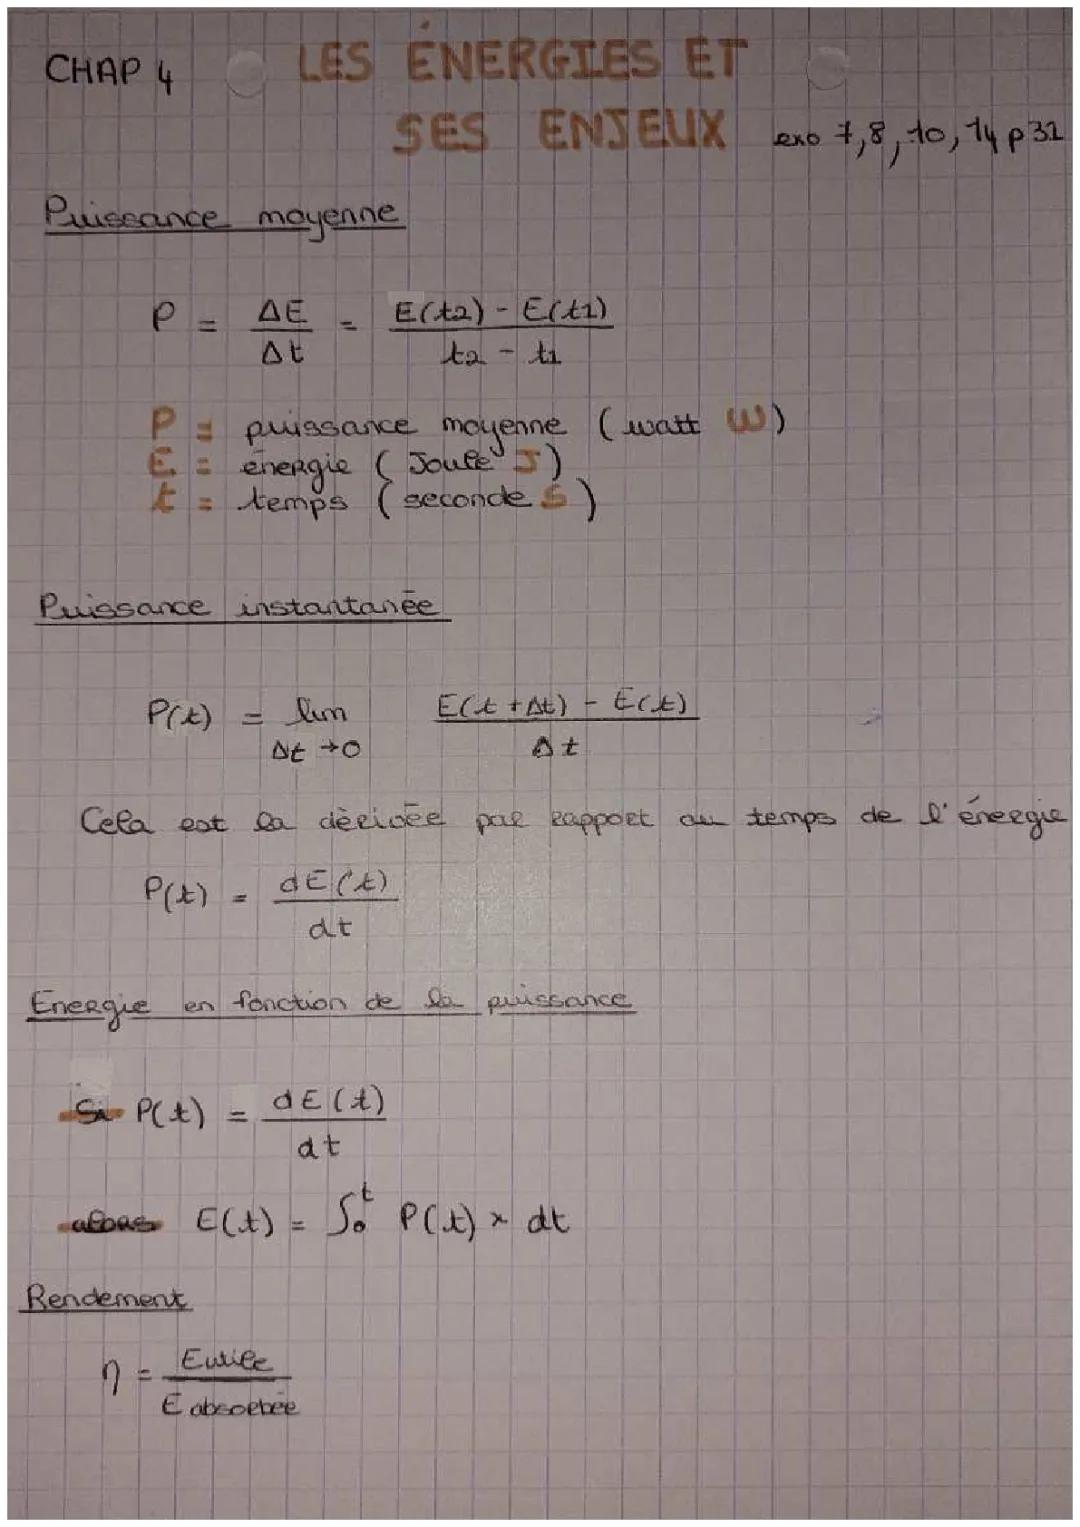 CHAP 4 LES ÉNERGIES ET
SES ENJEUX exo 7, 8, 10, 14 p 32
Puissance moyenne
P = ΔE / Δt = E(t2) - E(t1) / t2 - t1
P = puissance moyenne (watt W)
E = énergie (Joule J)
t = temps (seconde S)
Puissance instantanée
P(t) = lim Δt → 0 E(t + Δt) - E(t) / Δt
Cela est la dérivée par rapport au temps de l'énergie
P(t) = dE(t) / dt
Energie en fonction de la puissance
Si P(t) = dE(t) / dt
alors E(t) = ∫₀ᵗ P(t) × dt
Rendement
η = Eutile / E absorbée